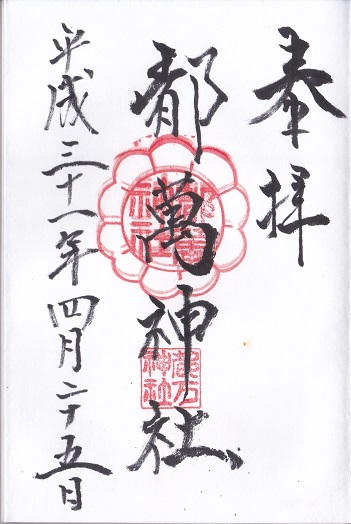 奉拝
都萬神社
平成三十一年四月二十五日
都万神社